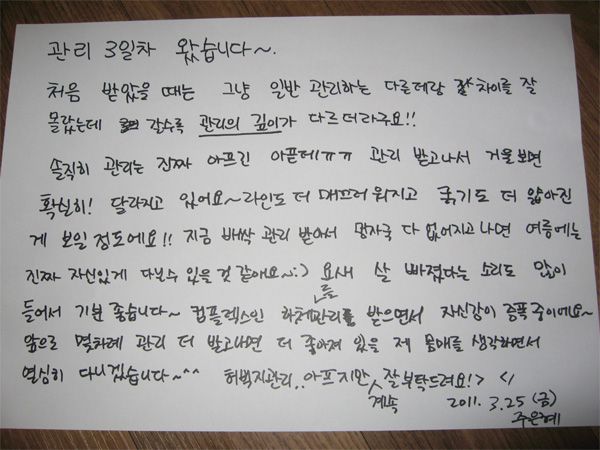 관리 3일차 왔습니다~.
처음 받았을 때는 그냥 일반 관리하는 다른데랑 차이를 잘
몰랐는데 갈수록 관리의 깊이가 다르더라구요!!
솔직히 관리는 진짜 아프긴 아픈데ㅠㅠ 관리 받고나서 거울보면
확실히! 달라지고 있어요~ 라인도 더 매끄러워지고 굵기도 더 얇아진
게 보일 정도에요!! 지금 바싹 관리 받아서 망자국 다 없어지고나면 여름에는
진짜 자신있게 다닐수 있을것 같애요~:) 요새 살 빠졌다는 소리도 많이
들어서 기분 좋습니다~ 컴플렉스인 하체관리를 받으면서 자신감이 증폭중이에요~
앞으로 몇차례 관리 더 받고나면 더 좋아져 있을 제 몸매를 생각하면서
열심히 다니겠습니다~^^ 허벅지관리..아프지만 계속 잘부탁드려요!>
2011. 3. 25 (금)
주은혜